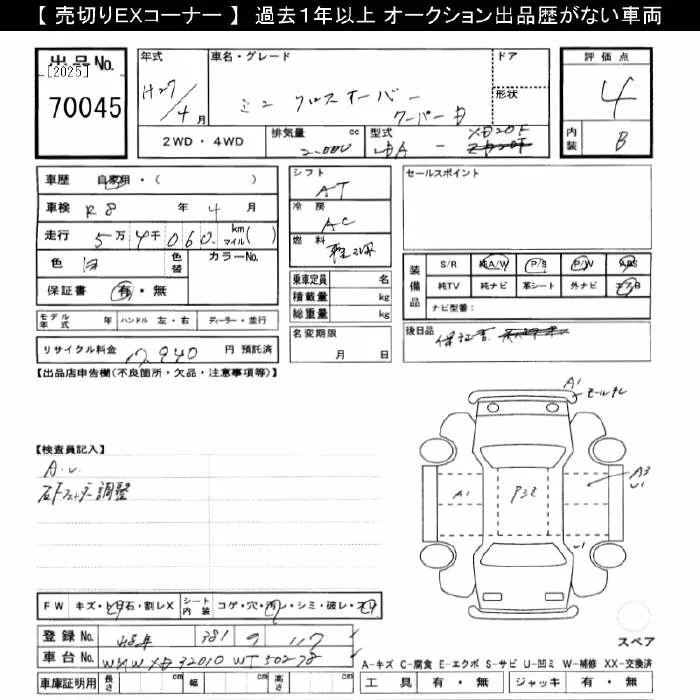 【 売切りEXコーナー 】 過去１年以上 オークション出品歴がない車両
出品No.
[2025]
70045
年式
H27/4月
車名・グレード
ミニ クロスオーバー
クーパーD
ドア
形状
評価点
4
内装
B
2WD・4WD
排気量
2.000 cc
型式
LDA -
XD20F
車歴 自家用・( )
車検 R8 年 4 月
走行 5万4千060 km マイル( )
色 白
色替
カラーNo.
保証書 有・無
シフト
AT
冷房
AC
燃料
軽油
乗車定員 名
積載量 kg
総重量 kg
名変期限
月 日
セールスポイント
装備品
S/R 純A/W P/S P/W ABS
純TV 純ナビ 革シート 外ナビ エアB
ナビ型番:
後日品
保証書
モデル年式 年 ハンドル 左・右 ディーラー・並行
リサイクル料金 12,940 円 預託済
【出品店申告欄(不良箇所・欠品・注意事項等)】
【検査員記入】
A.U.
調整
A1 モールキレ
A1
P32
A3
U1
U1
FW キズ・ヒ石・割レX シート内装 コゲ・穴・汚レ・シミ・破レ・スレ
登録No. 381 117
車台No. WMWXD32010WT50278
車庫証明用 長さ cm 幅 cm 高さ cm
スペア
A-キズ C-腐食 E-エクボ S-サビ U-凹ミ W-補修 XX-交換済
工具 有・無 ジャッキ 有・無